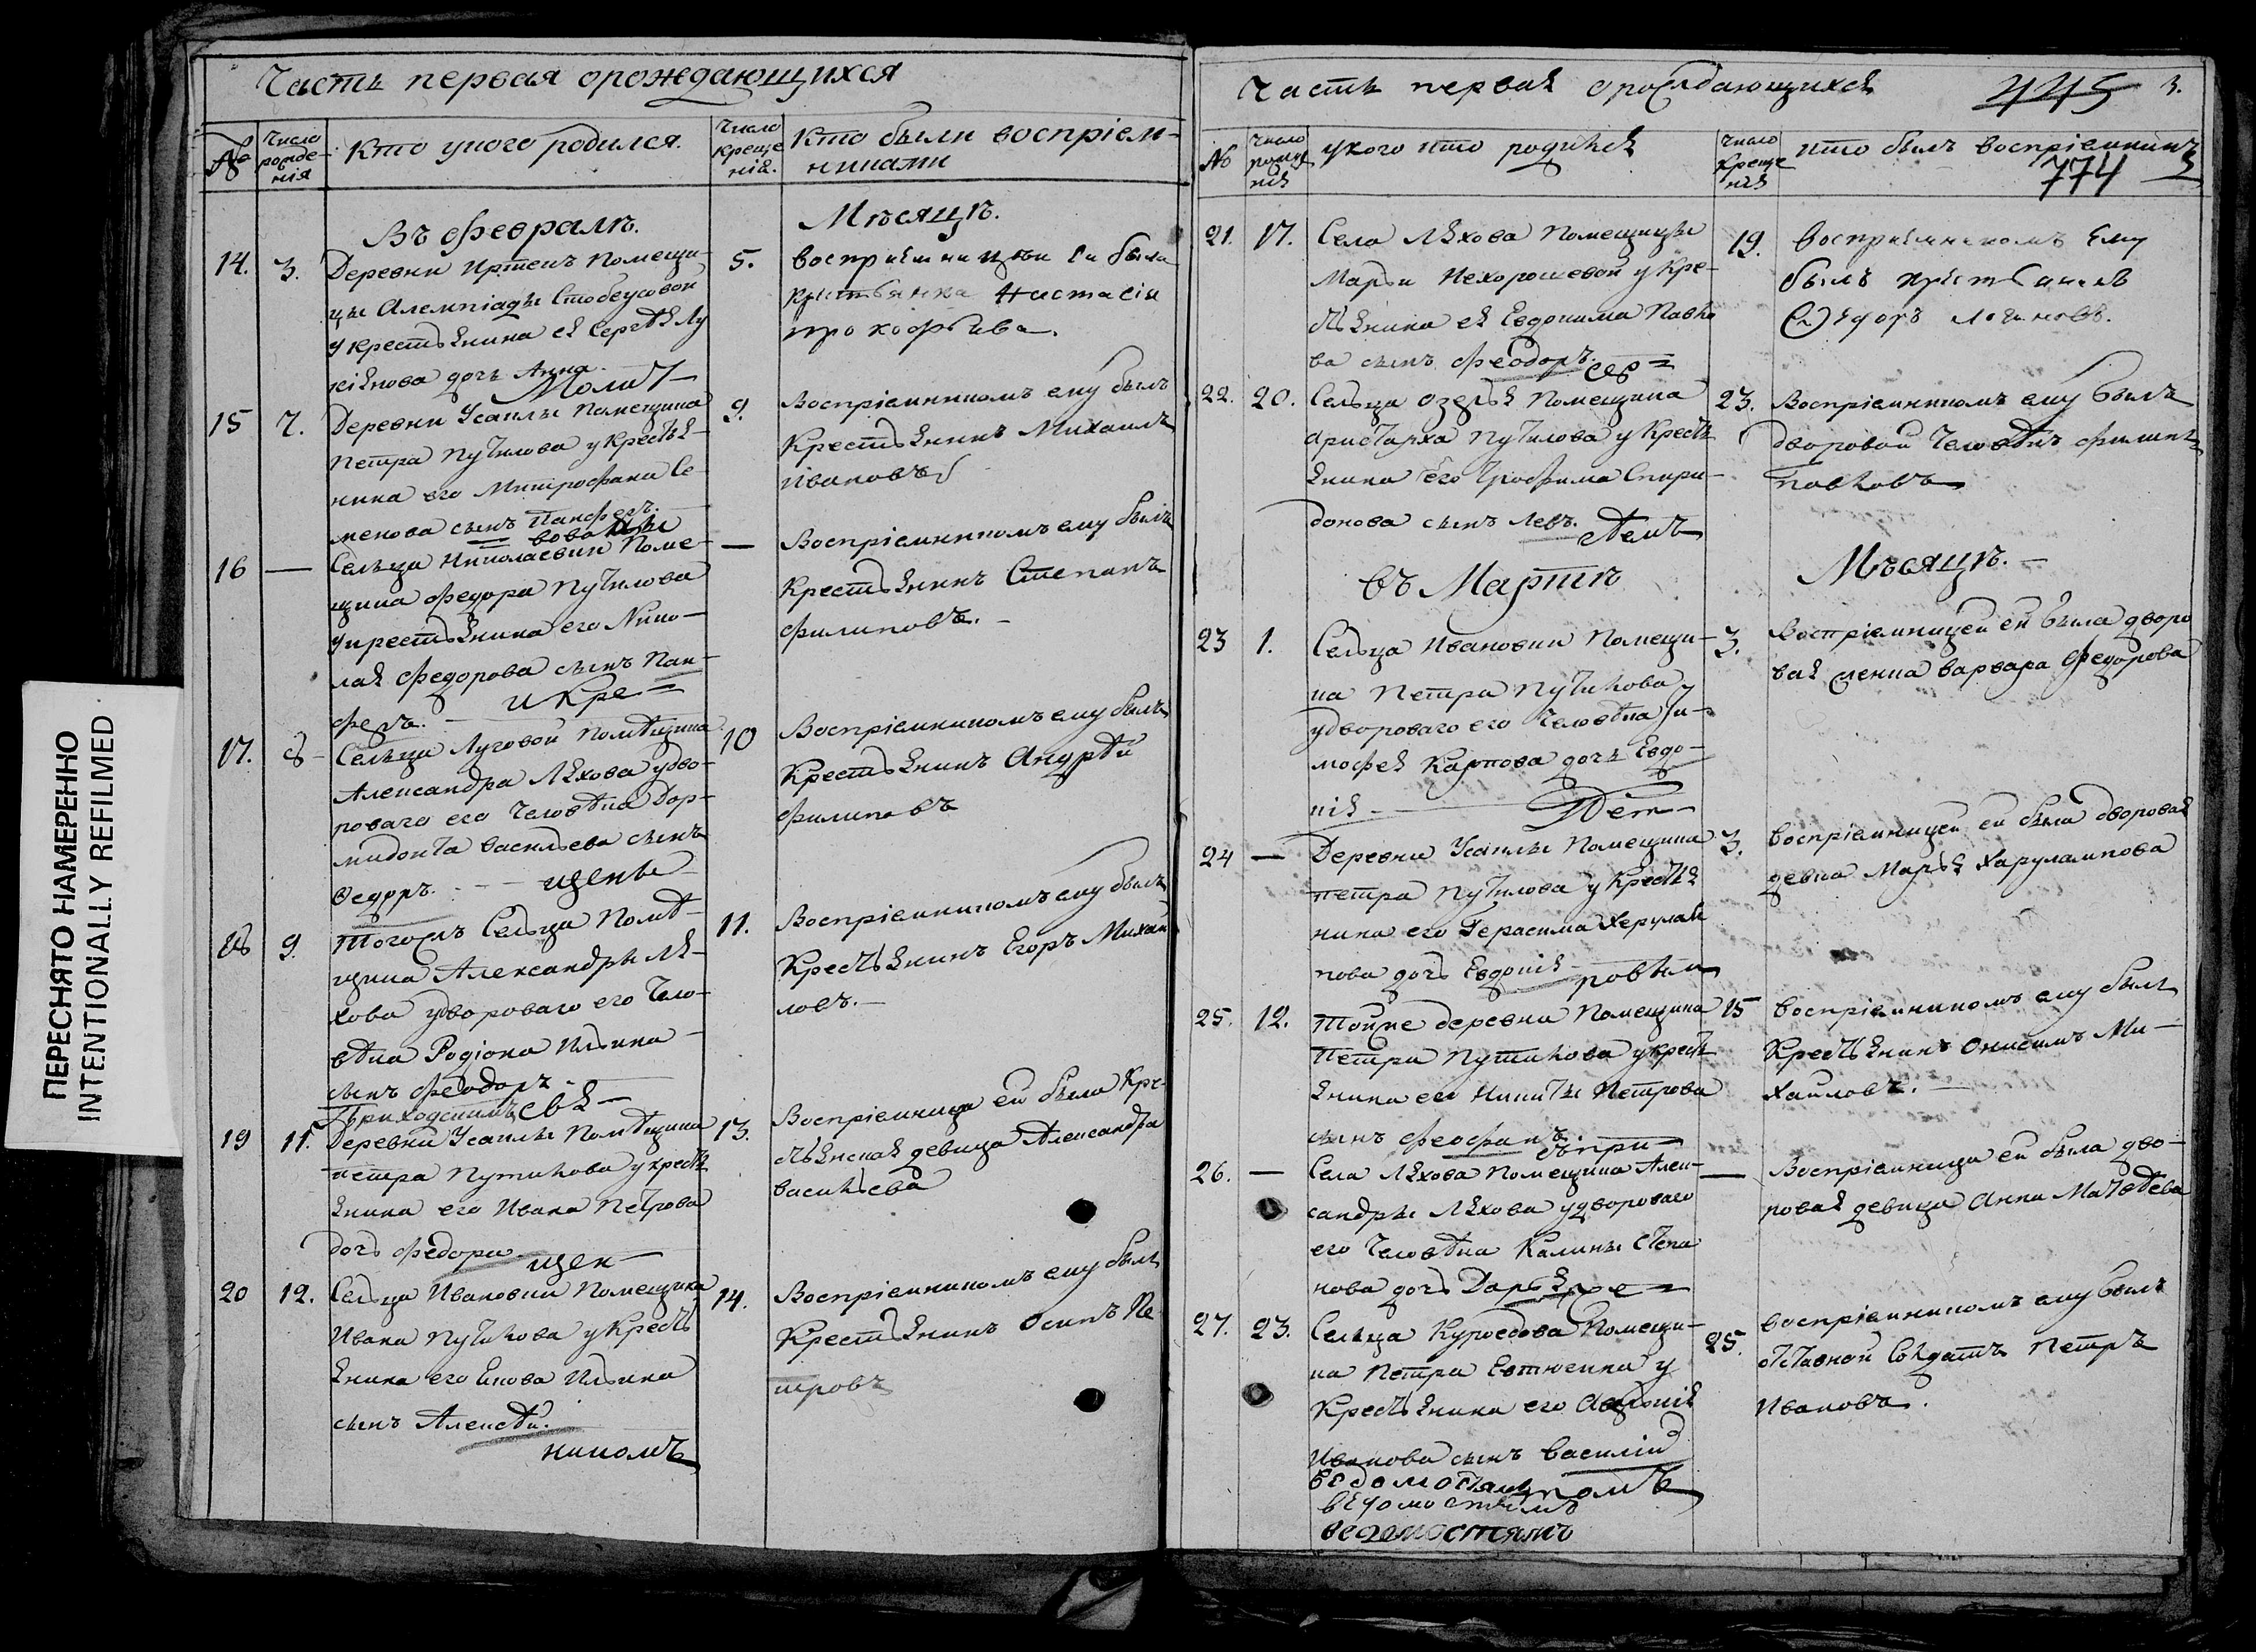 ПЕРЕСНЯТО НАМЕРЕННО
INTENTIONALLY REFILMED
Часть первая орождающихся
№
Число рожде-
нія
Кто укого родился.
Число
креще
нія.
Кто были воспріем-
никами
Въ Февралѣ.
Мѣсяцѣ.
14.
3.
Деревни Иртенъ Помещи-
цы Алемпіады Стобеусовой
у крестьянина ея Сергѣя Лу
кіянова дочь Анна.
5.
воспріемницѣи еи была
Настасія
прокофьева.
15
7.
Деревни Усаклы Помещика
Петра Путилова укрестья-
нина его Митрофана Се-
менова сынъ Панферъ.
9.
Воспріемникомъ ему былъ
Крестьянинъ Михаилъ
Ивановъ
16
—
Сельца Николаевки Поме-
щика Федора Путилова
укрестьянина его Нико-
лая Федорова сынъ Пан-
феръ.
—
Воспріемникомъ ему былъ
Крестьянинъ Степанъ
Филиповъ.
17.
8
Сельца Луговой Помѣщика
Александра Ляхова удво-
роваго его Человѣка Дор-
мидонта Васильева сынъ
Федоръ.
щены
10
Воспріемникомъ ему былъ
Крестьянинъ Андрѣй
Филиповъ
18
9.
Тогожъ Сельца Помѣ-
щика Александры Ля-
хова удвороваго его Чело-
вѣка Родіона Ильина
сынъ Феодоръ.
Приходскимъ свя
11.
Воспріемникомъ ему былъ
Крестьянинъ Егоръ Михай
ловъ.
19
11.
Деревни Усаклы Помѣщика
Петра Путилова укресть
янина его Ивана Петрова
дочь Федора
щен
13.
Воспріемница ей была Кре-
стьянская девица Александра
Васильева
20
12.
Сельца Ивановки Помещика
Ивана Путилова укресть
янина его Якова Ильина
сынъ Алексѣй.
никомъ
14.
Воспріемникомъ ему былъ
Крестьянинъ Осипъ Пе
тровъ
Часть первая орождающихся
445
3.
№
Число рожд
нія
укого кто родился
число
Креще
нія
кто былъ воспріемникъ
774
3
21.
17.
Села Ляхова Помещицы
Марьи Нехорошевой укре-
стьянина ея Евдокима Павло
ва сынъ Феодоръ.
19.
воспріемникомъ ему
былъ
Логиновъ.
22.
20.
Сельца Озерья Помещика
Аристарха Путилова укресть
янина его Трофима Спири-
донова сынъ Левъ.
23.
Воспріемникомъ ему былъ
дворовой Человѣкъ Филипъ
Павловъ
въ Мартѣ
Мѣсяцѣ.
23
1.
Сельца Ивановки Помещи-
ка Петра Путилова
удвороваго его Человѣка Ти-
мофея Карпова дочь Евдо-
кія
3.
Воспріемницей ей была дворо
вая женка Варвара Федорова
24
—
Деревни Усаклы Помещика
Петра Путилова у Крестья
нина его Герасима Харулам
пова дочь Евдокія
3.
Воспріемницей ей была дворовая
девка Марья Харулампова
25.
12.
Тойже деревни Помещика
Петра Путилова укресть
янина его Никиты Петрова
сынъ Феофанъ
15
Воспріемникомъ ему былъ
Крестьянинъ Онисимъ Ми-
хайловъ.
26.
—
Села Ляхова Помещика Алек-
сандры Ляхова удвороваго
его Человѣка Калины Степа
нова дочь Дарья
—
Воспріемница ей была дво-
ровая девица Анна Матвѣева
27.
23.
Сельца Куроедова Помещи-
ка Петра Евтюгина у
Крестьянина его Авдокія
Иванова сынъ Василій
25.
Воспріемникомъ ему былъ
отставной Солдатъ Петръ
Ивановъ.
ведомостямъ
ведомостямъ
ведомостямъ